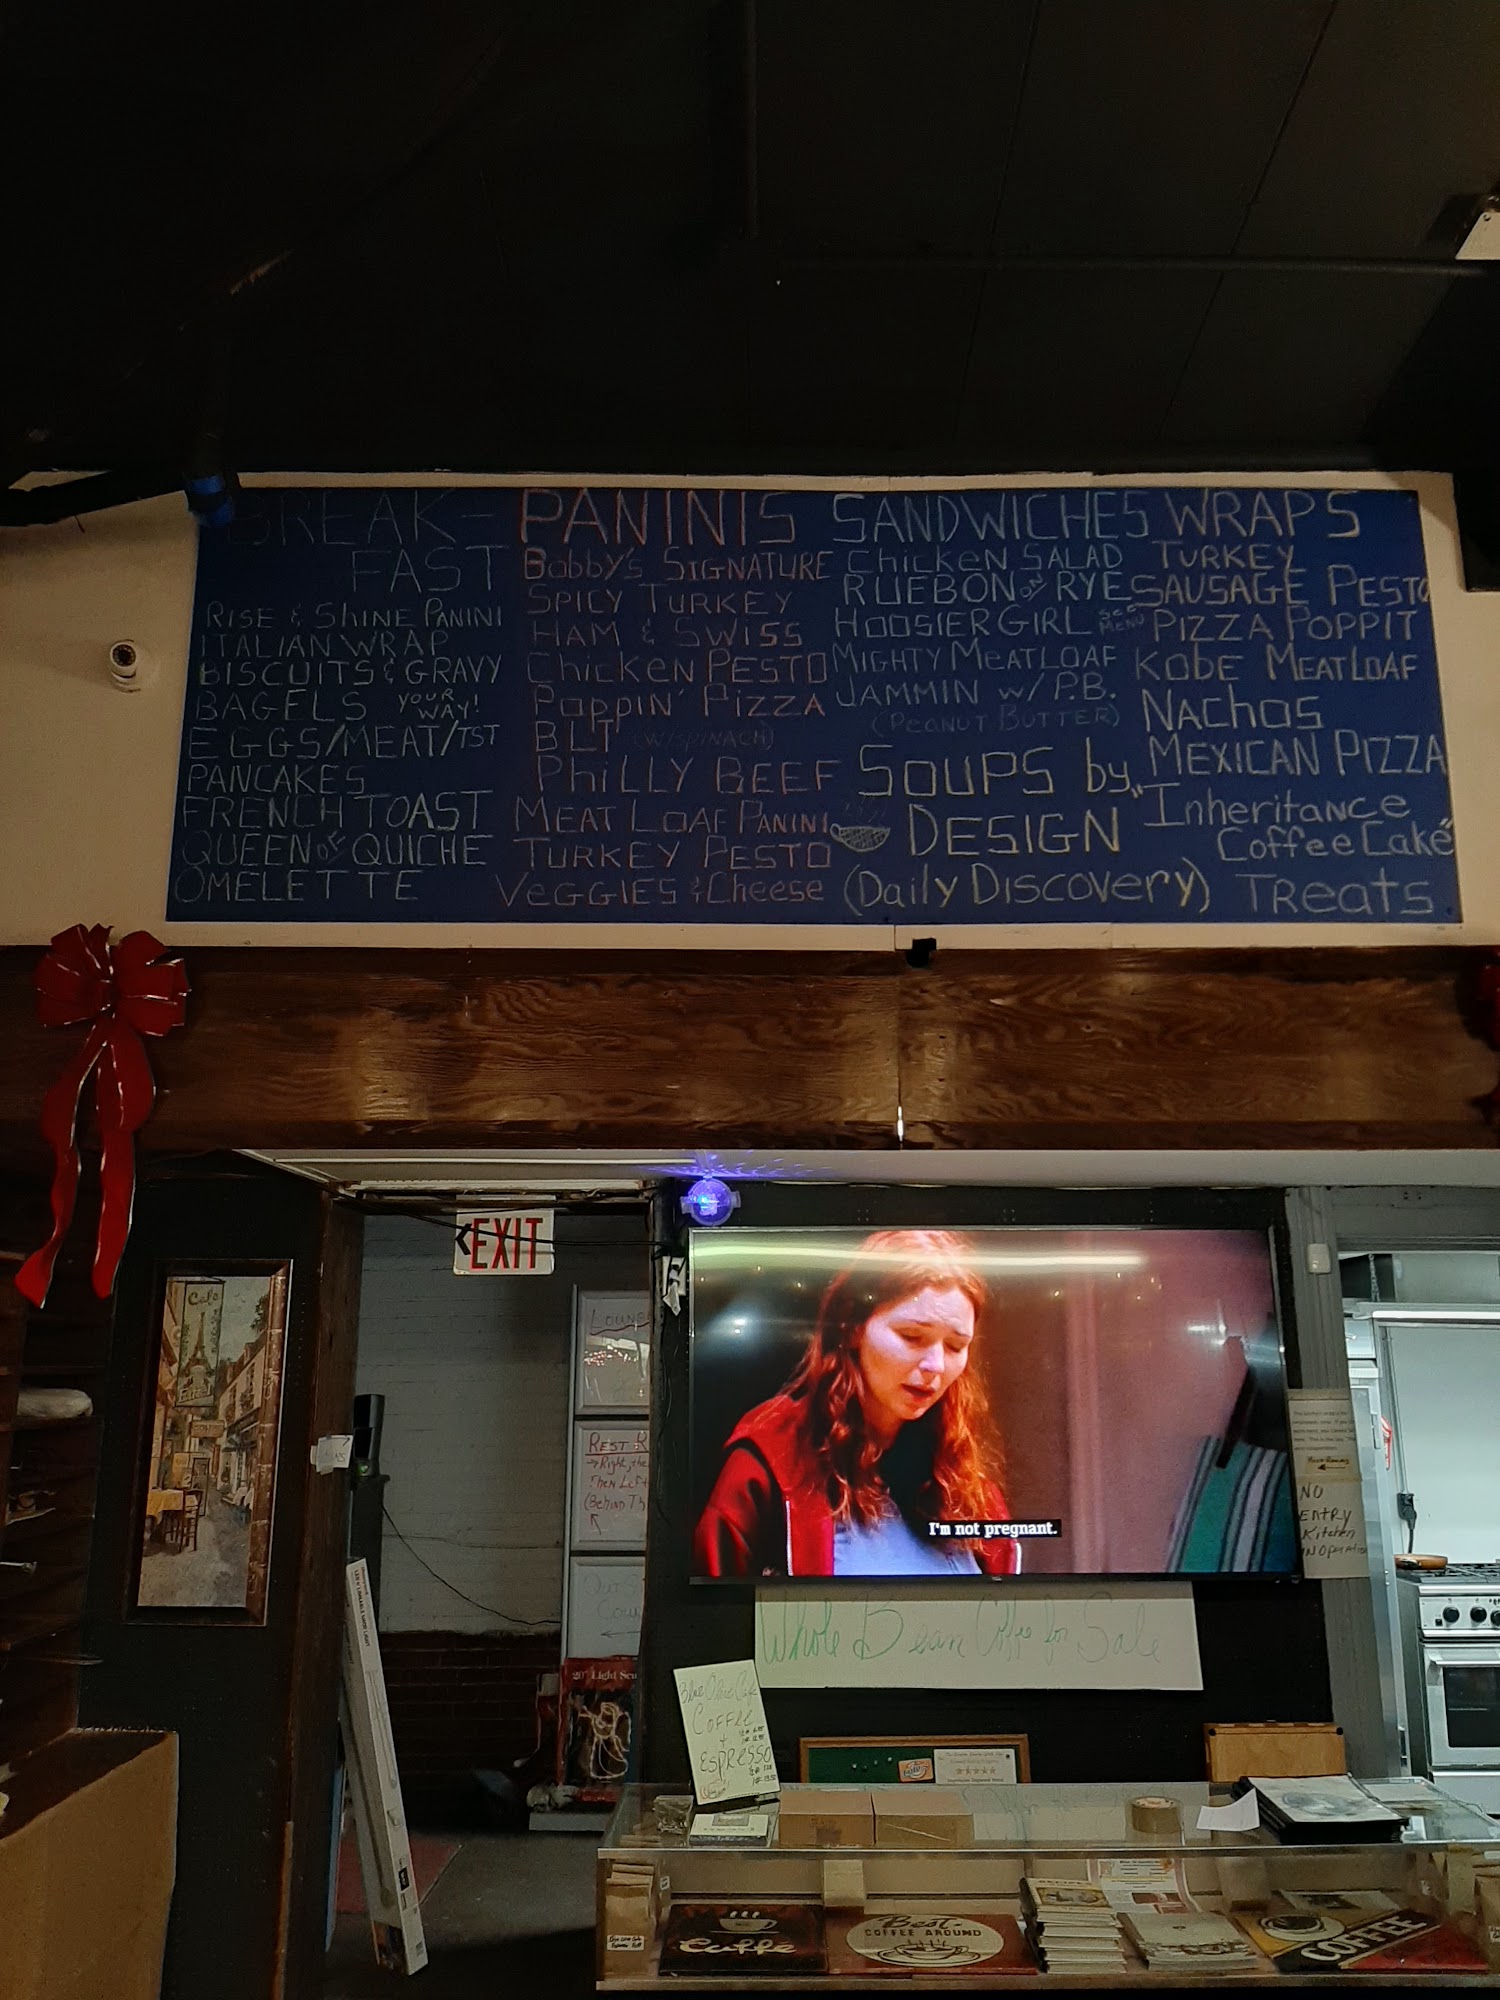 BREAK-
FAST
RISE & SHINE PANINI
ITALIAN WRAP
BISCUITS & GRAVY
BAGELS YOUR WAY!
EGGS/MEAT/TST
PANCAKES
FRENCH TOAST
QUEEN OF QUICHE
OMELETTE
PANINIS
Bobby's SIGNATURE
SPICY TURKEY
HAM & SWISS
Chicken PESTO
Poppin' PIZZA
BLT (W/SPINACH)
PHiLLY BEEF
MEAT LOAF PANINI
TURKEY PESTO
VEGGIES & Cheese
SANDWICHES
Chicken SALAD
RUEBON ON RYE
HOOSIER GIRL SEE MENU
MIGHTY MEATLOAF
JAMMIN W/ P.B.
(PEANUT BUTTER)
SOUPS by
DESIGN
(Daily Discovery)
WRAPS
TURKEY
SAUSAGE PESTO
PIZZA POPPIT
KOBE MEATLOAF
NAChos
MEXICAN PIZZA
"Inheritance
Coffee Cake"
TReats
EXIT
Cafe
LOUNG
REST R
→Right, the
Then Left
(Behind Th
I'm not pregnant.
NO
ENTRY
Kitchen
Whole Bean Coffee for Sale
COFFEE
+
ESPRESSO
20" Light
Caffe
Best
COFFEE AROUND
COFFEE